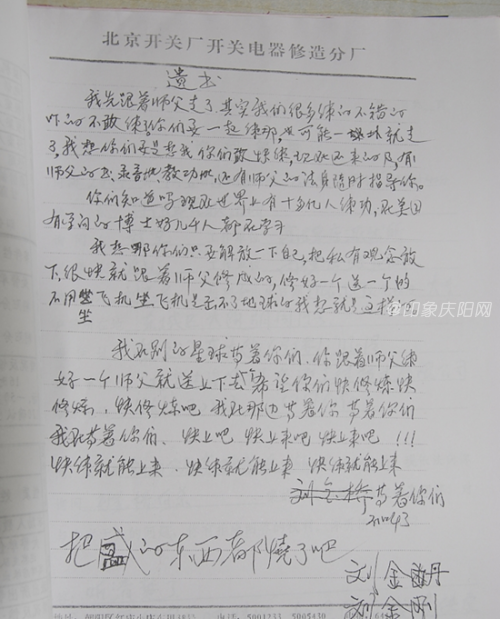 北京开关厂开关电器修造分厂
遗书
我先跟着师父走了其实我们很多练的不错的
咋的不敢练 你们要一起练那,也可能一批批就走
了,我想你们要是想我你们敢快练,现在还来的及,有
师父的书、录音机教功机,还有师父的法身随时指导你。
你们知道吗现在世界上有十多亿人练功,在美国
有学问的博士好几千人都在学
我想哪你们只要解放一下自己,把私有观念放
下,很快就跟着师父修成的,修好一个送一个的
不用坐飞机坐飞机是出不了地球的我想就是这样
坐
@印象庆阳网
我在别的星球等着你们、你跟着师父练
好一个师父就送上下去 希望你们快修炼快
修炼、快修炼吧 我在那边等着你 等着你们
我在等着你们、快上吧 快上来吧 快上来吧 !!!
快练就能上来、快练就能上来 快练就能上来
刘金桥等着你们
把盛的东西都烧了吧
刘金丹
刘金刚